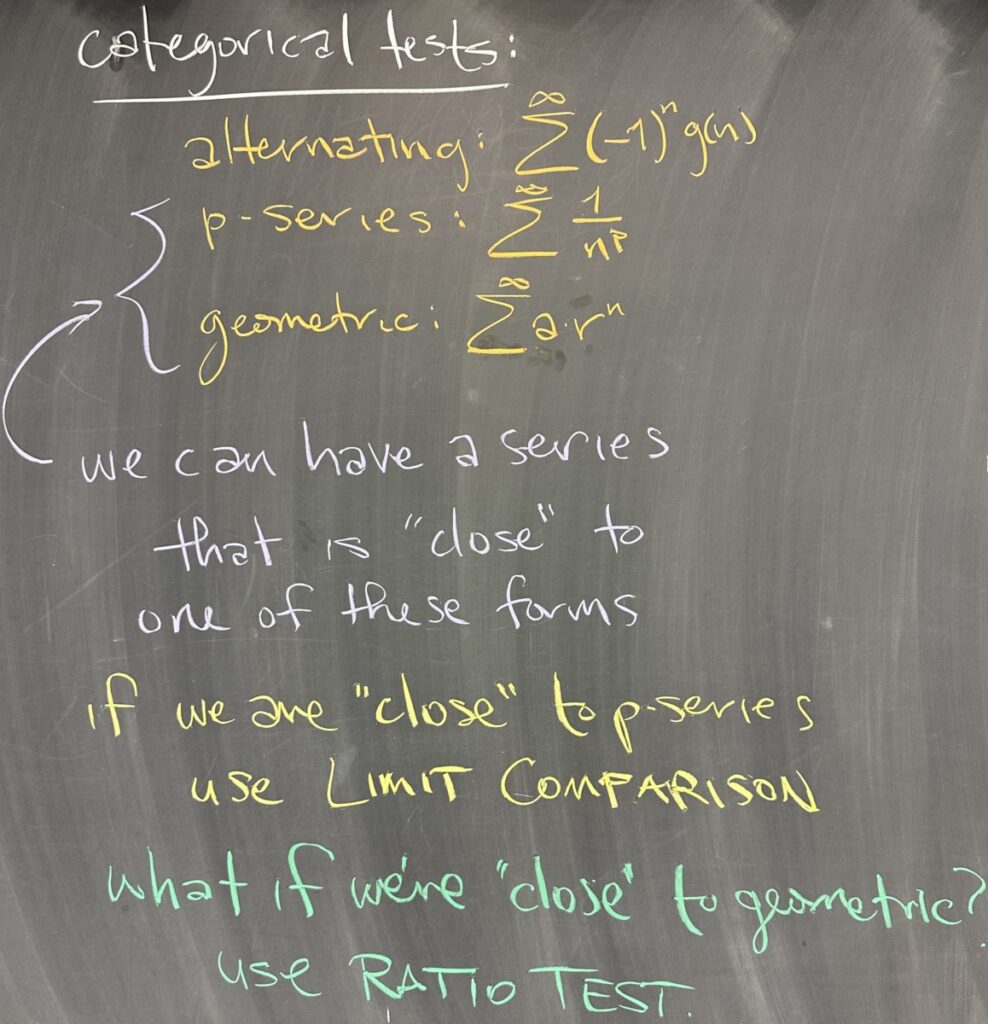 categorical tests:
alternating: ∞∑(-1)ⁿg(n)
p-series: ∞∑ 1/nᵖ
geometric: ∞∑ a·rⁿ
we can have a series
that is "close" to
one of these forms
if we are "close" to p-series
use LIMIT COMPARISON
what if we're "close" to geometric?
use RATIO TEST.